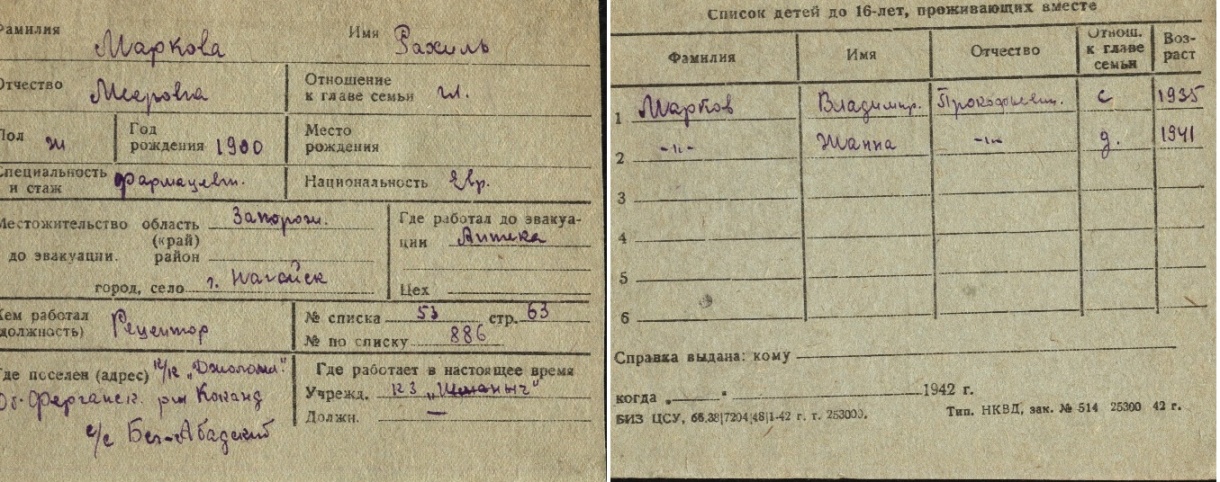 Фамилия Маркова Имя Рахиль
Отчество Мееровна Отношение
к главе семьи гл.
Пол ж Год
рождения 1900 Место
рождения
Специальность
и стаж фармацевт. Национальность Евр.
Местожительство область Запорож.
(край)
до эвакуации. район
город, село г. Нагайск
Где работал до эвакуа-
ции Аптека
Цех
Кем работал
(должность) Рецептор
№ списка 53 стр. 63
№ по списку 886
Где поселен (адрес)
Ферганск. р-н Коканд
с/с Беш-Абадский
Где работает в настоящее время
Учрежд.
Должн. —
Список детей до 16-лет, проживающих вместе
Фамилия Имя Отчество Отнош.
к главе
семьи Воз-
раст
1 Марков Владимир. Прокофьевич. с 1935
2 -"- Жанна -"- д. 1941
3
4
5
6
Справка выдана: кому
когда „ " 1942 г.
БИЗ ЦСУ, 66,38|7204|48|1-42 г. т. 253000.
Тип. НКВД, зак. № 514 25300 42 г.